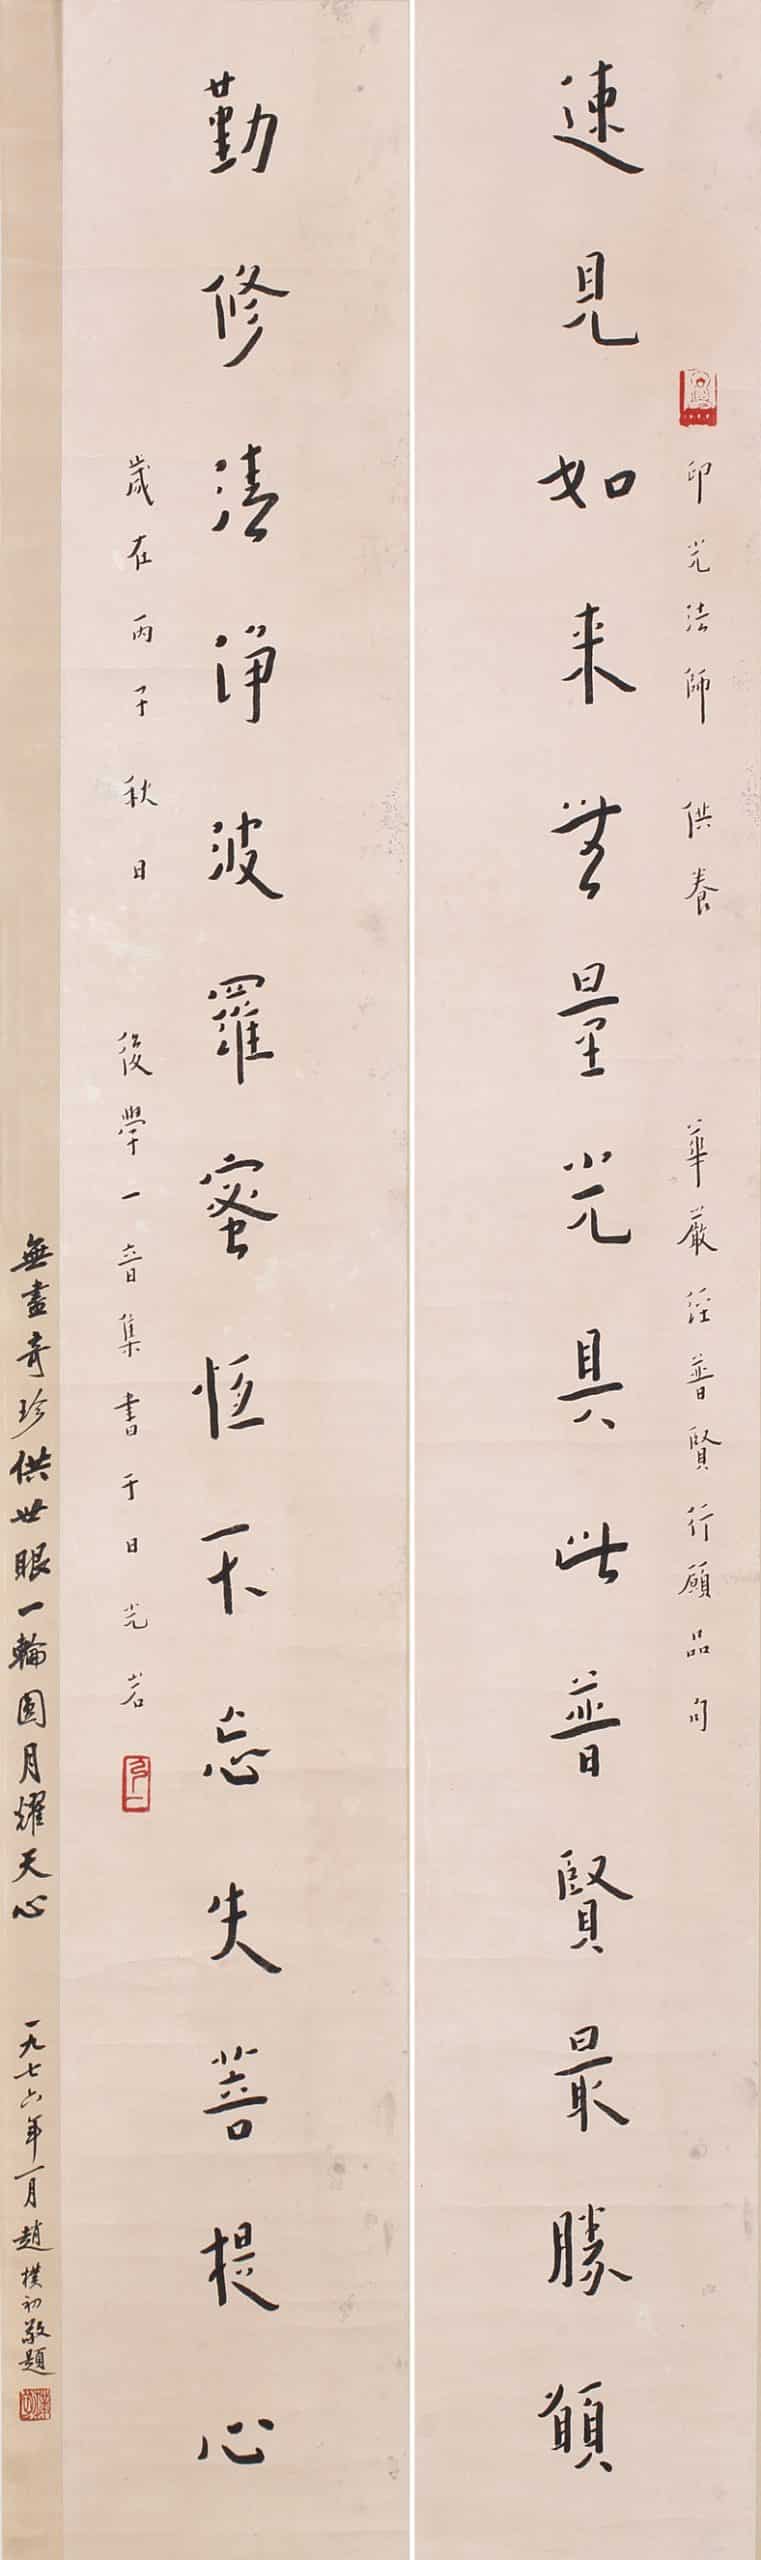 印光法師 供養 華嚴經普賢行願品句
速見如来無量光具此普賢最勝願
勤修清净波羅蜜恆不忘失菩提心
歲在丙子秋日 後學一音集書于日光岩
無盡奇珍供世眼一輪圓月耀天心
一九七六年一月趙樸初敬題